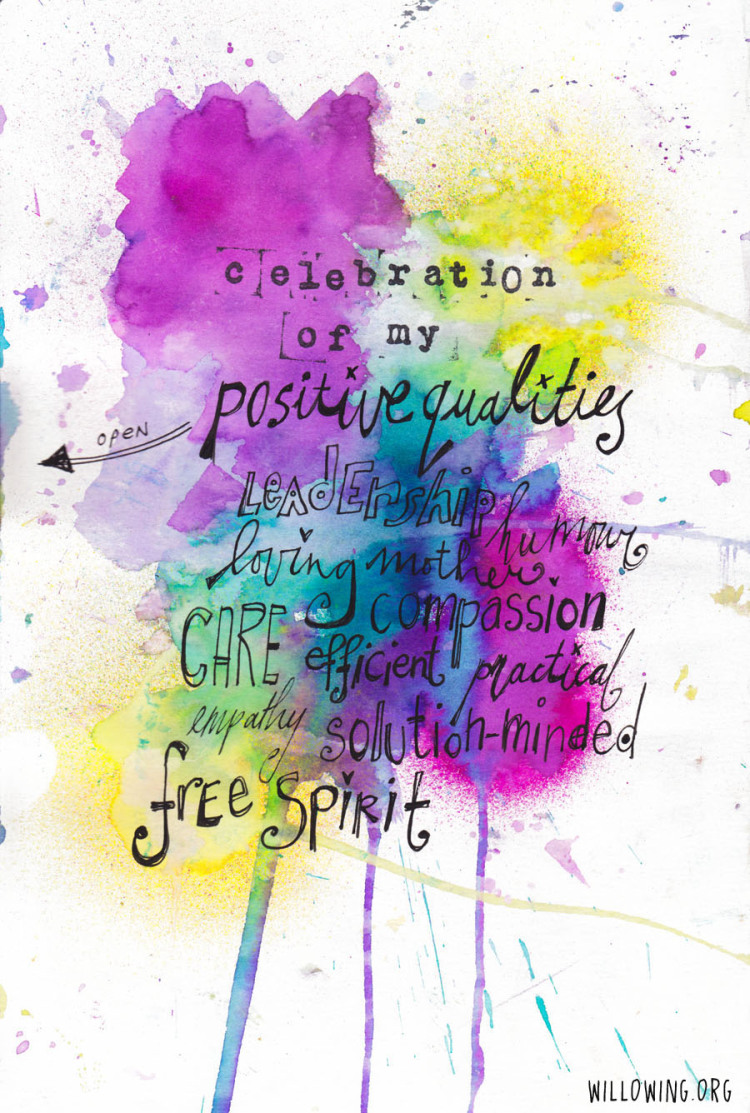 celebration
of my
positive qualities
OPEN
LEADERship
humour
loving mother
CARE compassion
efficient practical
empathy solution-minded
fREE SPIRIT
WILLOWING.ORG